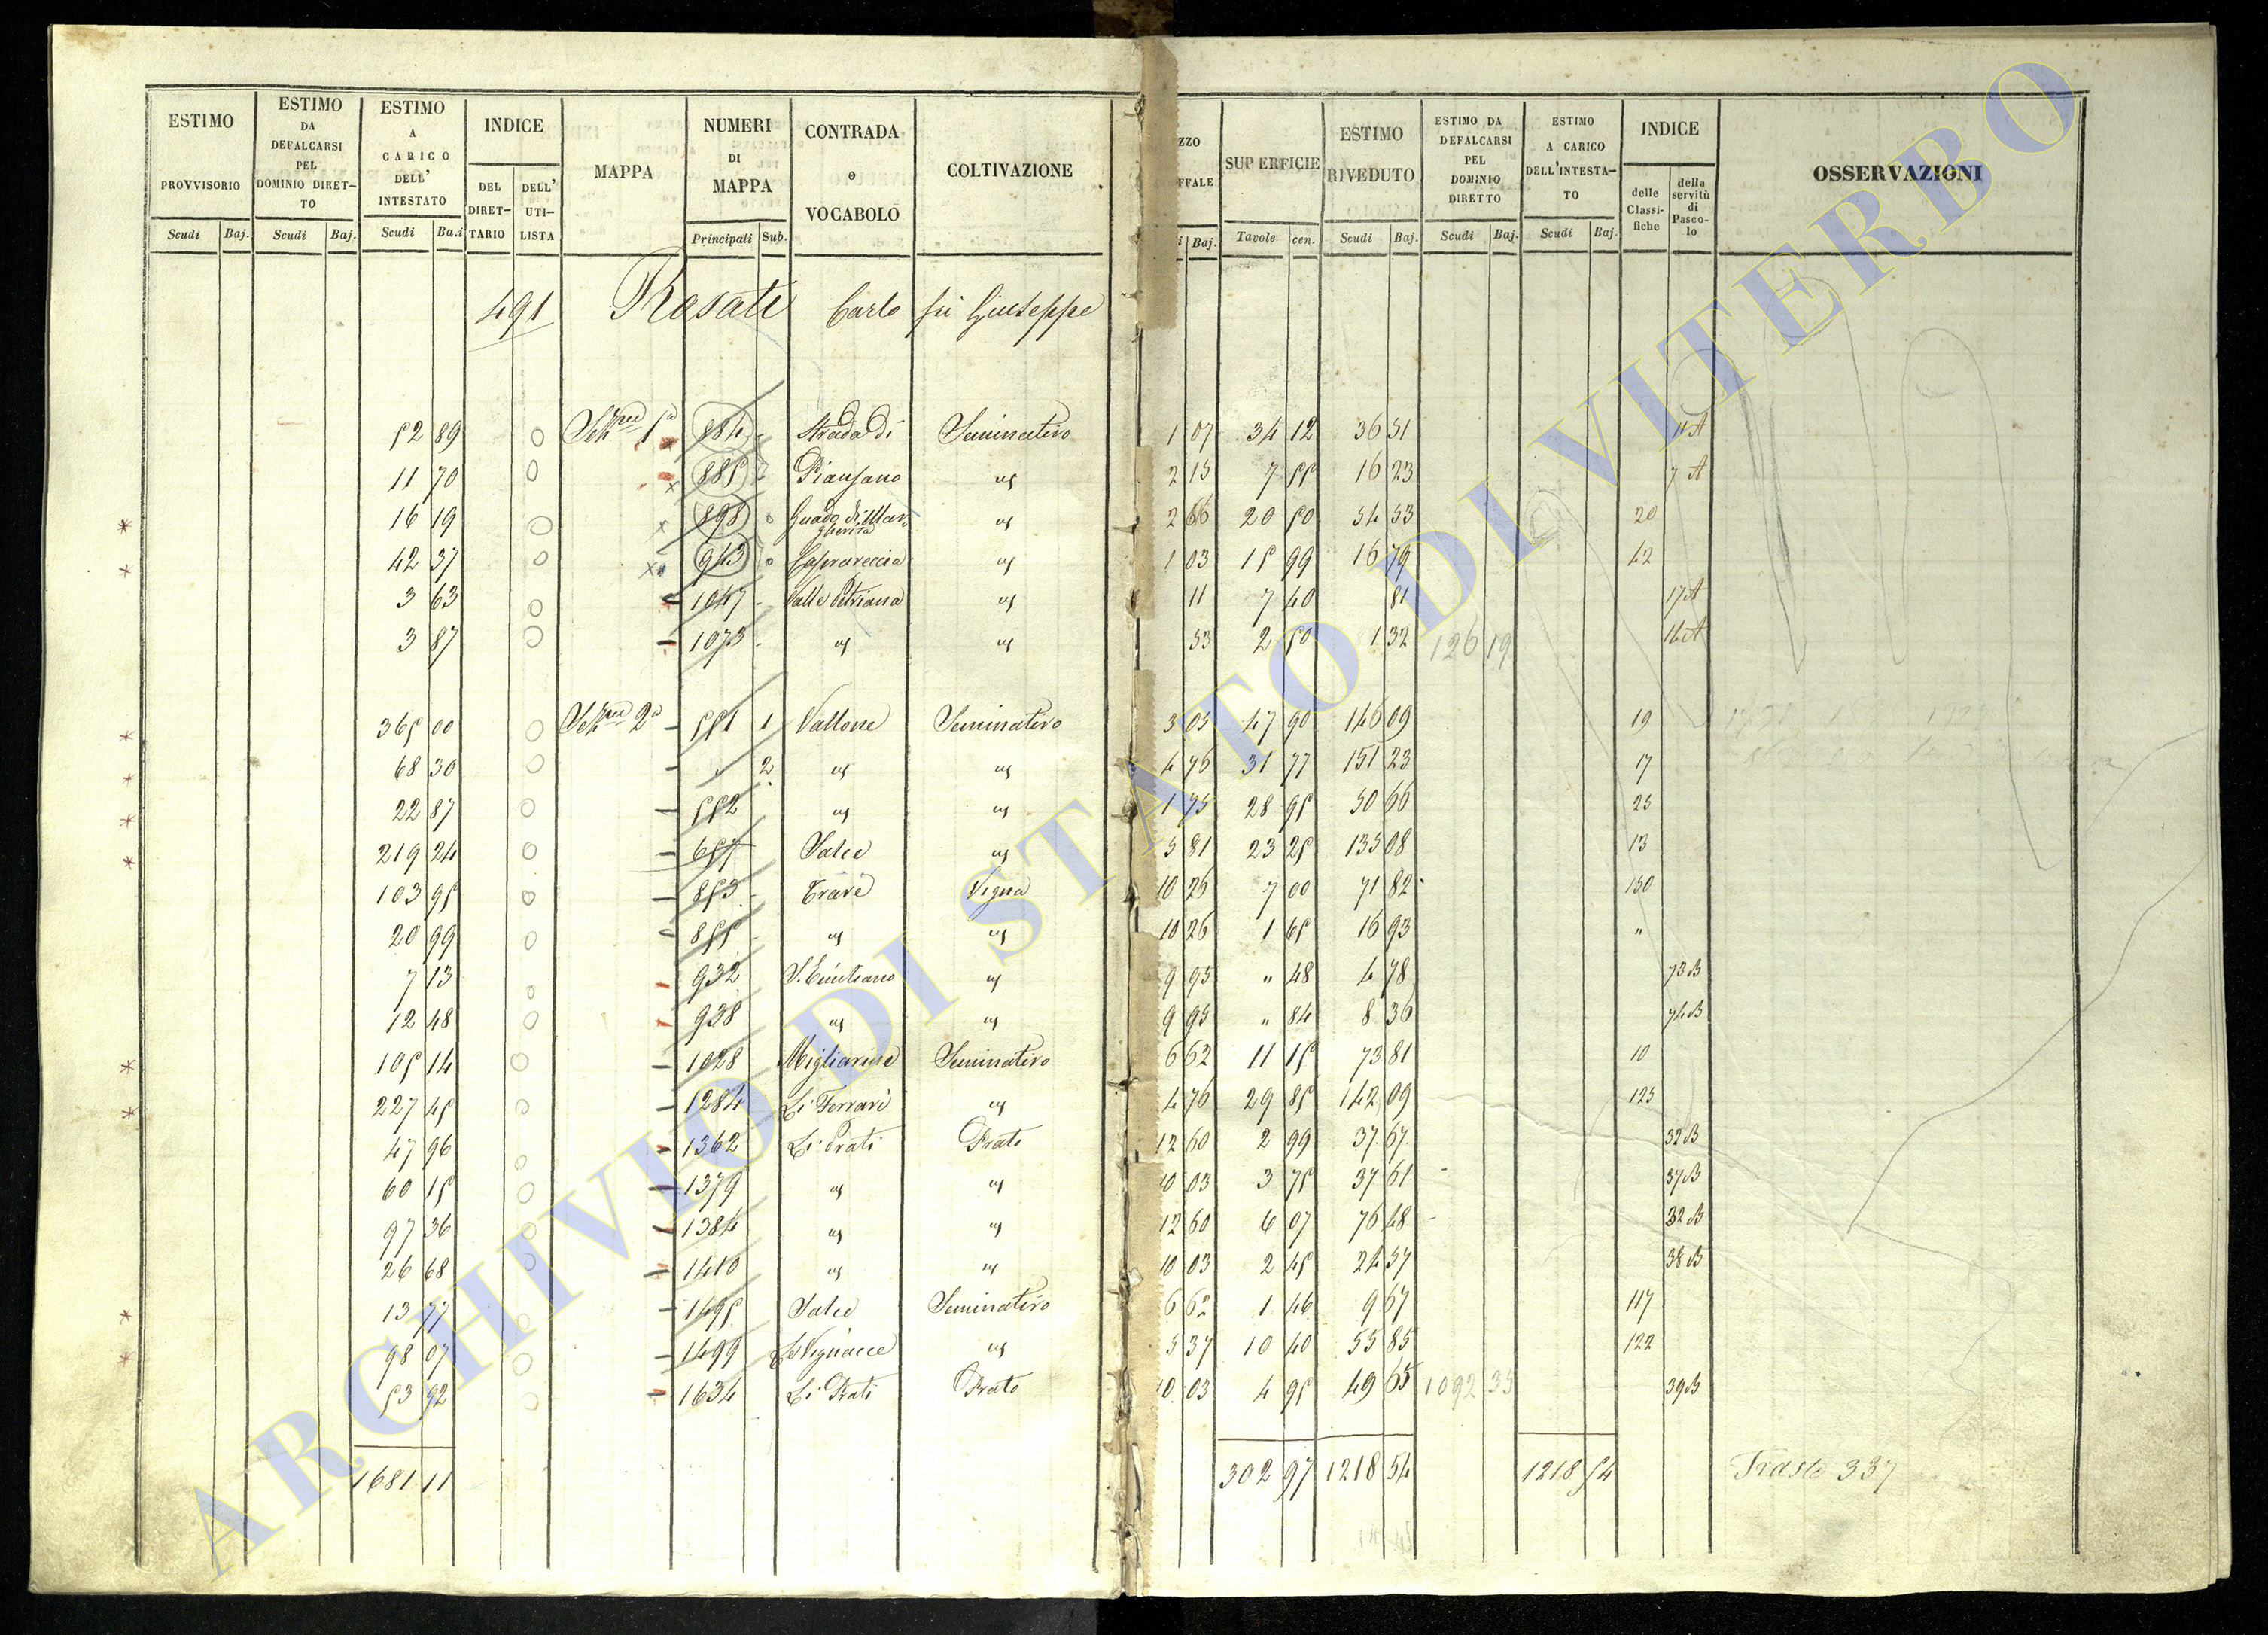 ESTIMO PROVVISORIO
Scudi Baj.
ESTIMO DA DEFALCARSI PEL DOMINIO DIRET-TO
Scudi Baj.
ESTIMO A CARICO DELL' INTESTATO
Scudi Ba.i
INDICE
DEL DIRET-TARIO
DELL' UTI-LISTA
MAPPA
NUMERI DI MAPPA
Principali Sub.
CONTRADA o VOCABOLO
COLTIVAZIONE
ZZO FFALE
i Baj.
SUPERFICIE
Tavole cen.
ESTIMO RIVEDUTO
Scudi Baj.
ESTIMO DA DEFALCARSI PEL DOMINIO DIRETTO
Scudi Baj.
ESTIMO A CARICO DELL'INTESTA-TO
Scudi Baj.
INDICE
delle Classi-fiche
della servitù di Pasco-lo
OSSERVAZIONI
491 Rosati Carlo fù Giuseppe
52 89 1a 884 Strada di Seminativo 1 07 34 12 36 51 11A
11 70 885 Piansano 2 15 7 55 16 23 7 A
16 19 898 Guado di Margherita 2 66 20 50 54 53 20
42 37 943 Caprareccia 1 03 15 99 16 79 42
3 63 1047 Valle Petriana 11 7 40 81 17A
3 87 1073 53 2 50 1 32 126 19 16A
365 00 2a 551 1 Vallone Seminativo 3 05 47 90 146 09 19
68 30 2 4 76 31 77 151 23 17
22 87 552 1 75 28 95 50 66 25
219 24 657 Salce 5 81 23 25 135 08 13
103 95 853 Trave Vigna 10 26 7 00 71 82 150
20 99 855 10 26 1 65 16 93 "
7 13 932 9 95 " 48 4 78 73B
12 48 938 9 95 " 84 8 36 74B
105 14 1028 Migliarine Seminativo 6 62 11 15 73 81 10
227 45 1284 Li Ferrari 4 76 29 85 142 09 123
47 96 1362 Li Prati Prato 12 60 2 99 37 67 32B
60 15 1379 10 03 3 75 37 61 37B
97 36 1384 12 60 6 07 76 48 32B
26 68 1410 10 03 2 45 24 57 38B
13 77 1495 Salce Seminativo 6 62 1 46 9 67 117
98 07 1499 Le Vignacce 5 37 10 40 55 85 122
53 92 1634 Li Prati Prato 10 03 4 95 49 65 1092 35 39B
1681 11 302 97 1218 54 1218 54 337
ARCHIVIO DI STATO DI VITERBO